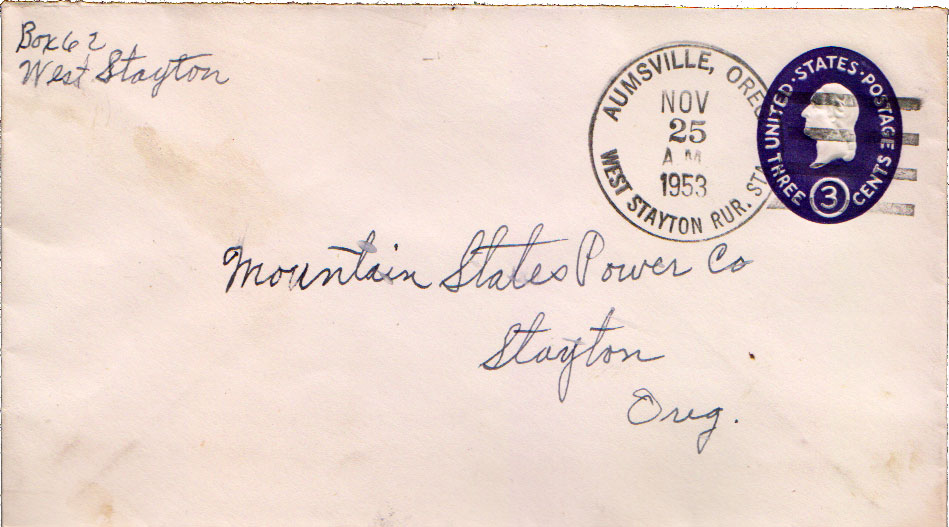 Box 62
West Stayton
AUMSVILLE, OREG
NOV
25
A M
1953
WEST STAYTON RUR. STA
UNITED STATES POSTAGE
THREE 3 CENTS
Mountain States Power Co
Stayton
Oreg.